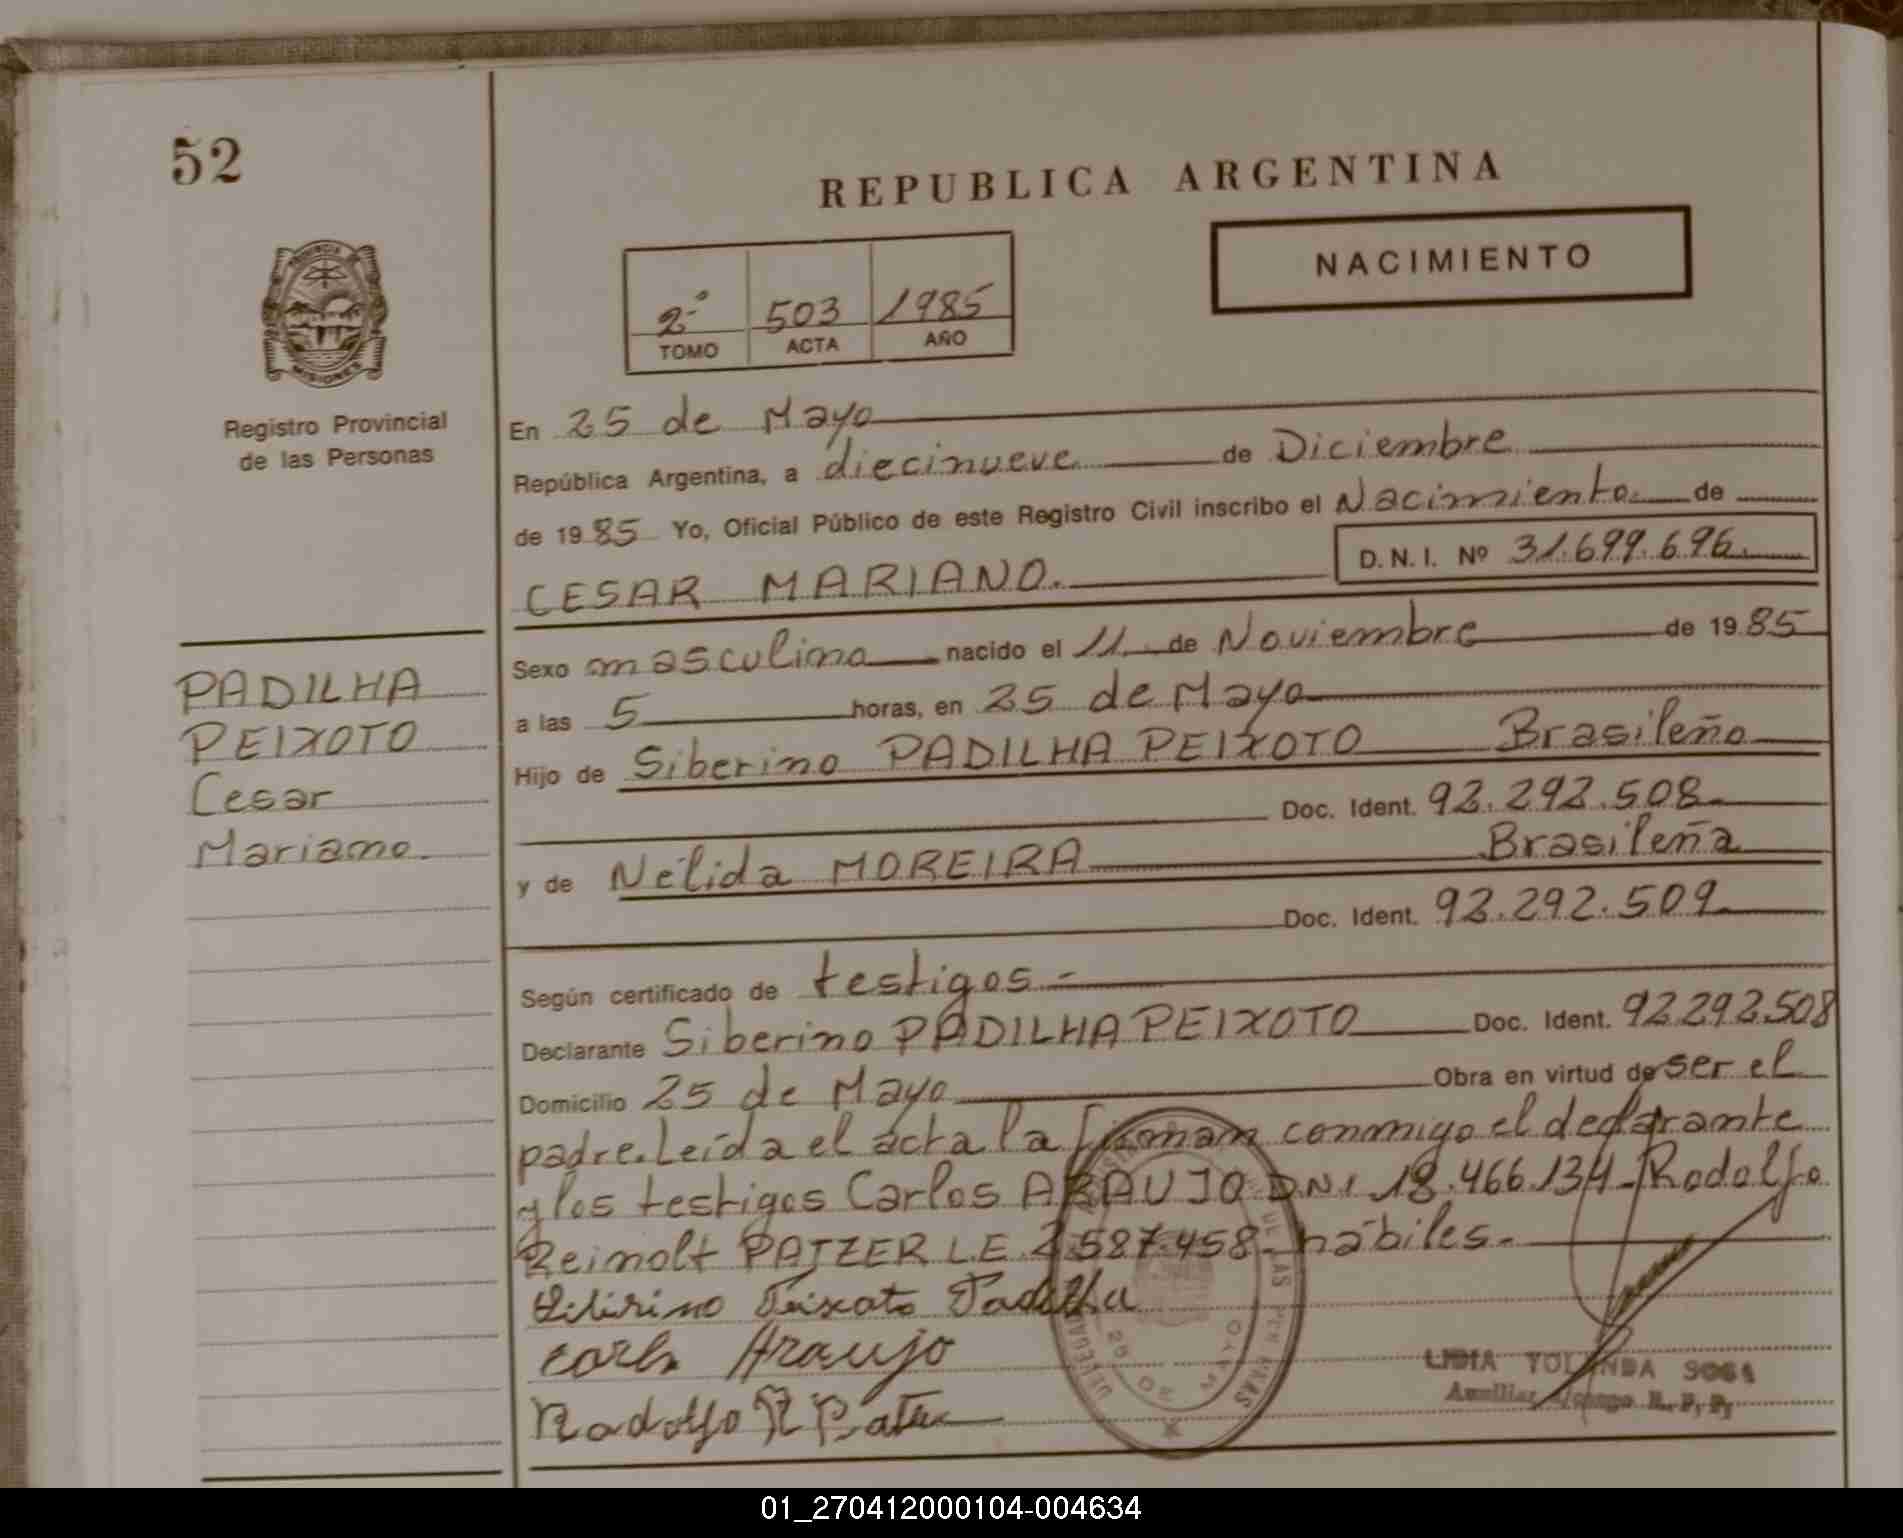 52
REPUBLICA ARGENTINA
NACIMIENTO
2º 503 1985
TOMO ACTA AÑO
PROVINCIA DE MISIONES
Registro Provincial
de las Personas
En 25 de Mayo
República Argentina, a diecinueve de Diciembre
de 1985 Yo, Oficial Público de este Registro Civil inscribo el Nacimiento de
D.N.I. Nº 31.699.696
CESAR MARIANO.
PADILHA
PEIXOTO
Cesar
Mariano.
Sexo masculino nacido el 11 de Noviembre de 1985
a las 5 horas, en 25 de Mayo
Hijo de Siberino PADILHA PEIXOTO Brasileño
Doc. Ident. 92.292.508
y de Nélida MOREIRA Brasileña
Doc. Ident. 92.292.509
Según certificado de testigos -
Declarante Siberino PADILHA PEIXOTO Doc. Ident. 92.292.508
Domicilio 25 de Mayo Obra en virtud de ser el
padre. Leída el acta la firman conmigo el declarante
y los testigos Carlos ARAUJO DNI 18.466.134 - Rodolfo
Reinolt PATZER LE 2.587.458 - hábiles.
Peixoto Padilha
Carlos Araujo
Rodolfo R
25 DE MAYO
LIDIA YOLANDA SOSA
Auxiliar
01_270412000104-004634